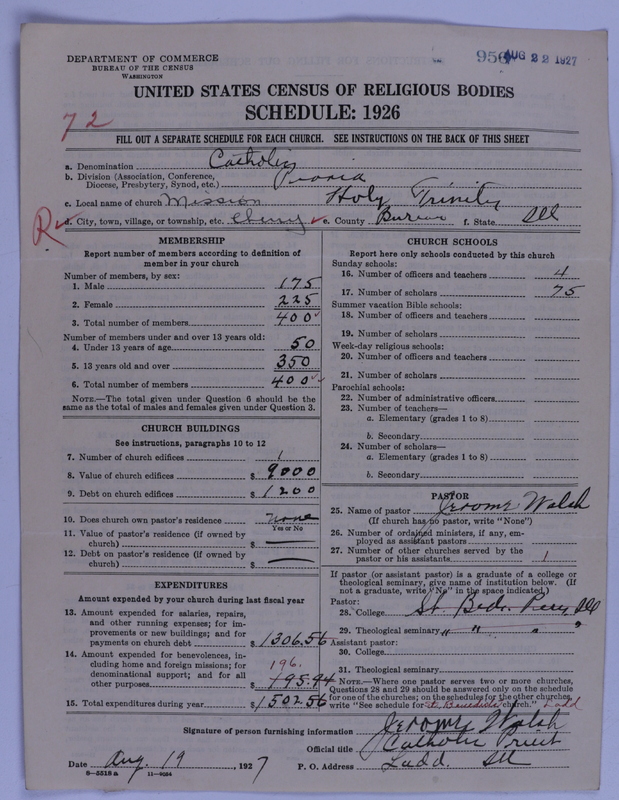 DEPARTMENT OF COMMERCE
BUREAU OF THE CENSUS
WASHINGTON
956 AUG 22 1927
UNITED STATES CENSUS OF RELIGIOUS BODIES
SCHEDULE: 1926
72
FILL OUT A SEPARATE SCHEDULE FOR EACH CHURCH. SEE INSTRUCTIONS ON THE BACK OF THIS SHEET
a. Denomination Catholic
b. Division (Association, Conference, Diocese, Presbytery, Synod, etc.) Peoria
c. Local name of church Mission Holy Trinity
R
d. City, town, village, or township, etc. Cherry e. County Bureau f. State Ill
MEMBERSHIP
Report number of members according to definition of
member in your church
Number of members, by sex:
1. Male 175
2. Female 225
3. Total number of members 400
Number of members under and over 13 years old:
4. Under 13 years of age 50
5. 13 years old and over 350
6. Total number of members 400
NOTE.—The total given under Question 6 should be
same as the total of males and females given under Question 3.
CHURCH BUILDINGS
See instructions, paragraphs 10 to 12
7. Number of church edifices 1
8. Value of church edifices $ 9000
9. Debt on church edifices $ 1200
10. Does church own pastor's residence none
Yes or No
11. Value of pastor's residence (if owned by
church) $ —
12. Debt on pastor's residence (if owned by
church) $ —
EXPENDITURES
Amount expended by your church during last fiscal year
13. Amount expended for salaries, repairs,
and other running expenses; for im-
provements or new buildings; and for
payments on church debt $ 1306.56
14. Amount expended for benevolences, in-
cluding home and foreign missions; for 196.
denominational support; and for all
other purposes $ 195.94
15. Total expenditures during year $ 1502.56
CHURCH SCHOOLS
Report here only schools conducted by this church
Sunday schools:
16. Number of officers and teachers 4
17. Number of scholars 75
Summer vacation Bible schools:
18. Number of officers and teachers
19. Number of scholars
Week-day religious schools:
20. Number of officers and teachers
21. Number of scholars
Parochial schools:
22. Number of administrative officers
23. Number of teachers—
a. Elementary (grades 1 to 8)
b. Secondary
24. Number of scholars—
a. Elementary (grades 1 to 8)
b. Secondary
PASTOR
25. Name of pastor Jerome Walsh
(If church has no pastor, write "None")
26. Number of ordained ministers, if any, em-
ployed as assistant pastors
27. Number of other churches served by the
pastor or his assistants 1
If pastor (or assistant pastor) is a graduate of a college or
theological seminary, give name of institution below. (If
not a graduate, write "No" in the space indicated.)
Pastor:
28. College St. Bede Peru, Ill
29. Theological seminary " " " "
Assistant pastor:
30. College
31. Theological seminary
NOTE.—Where one pastor serves two or more churches,
Questions 28 and 29 should be answered only on the schedule
for one of the churches; on the schedules for the other churches,
write "See schedule for St. Benedicts church." Ladd
Signature of person furnishing information Jerome Walsh
Official title Catholic Priest
Date Aug. 19, 1927 P. O. Address Ladd Ill
8—5518 a 11—9064